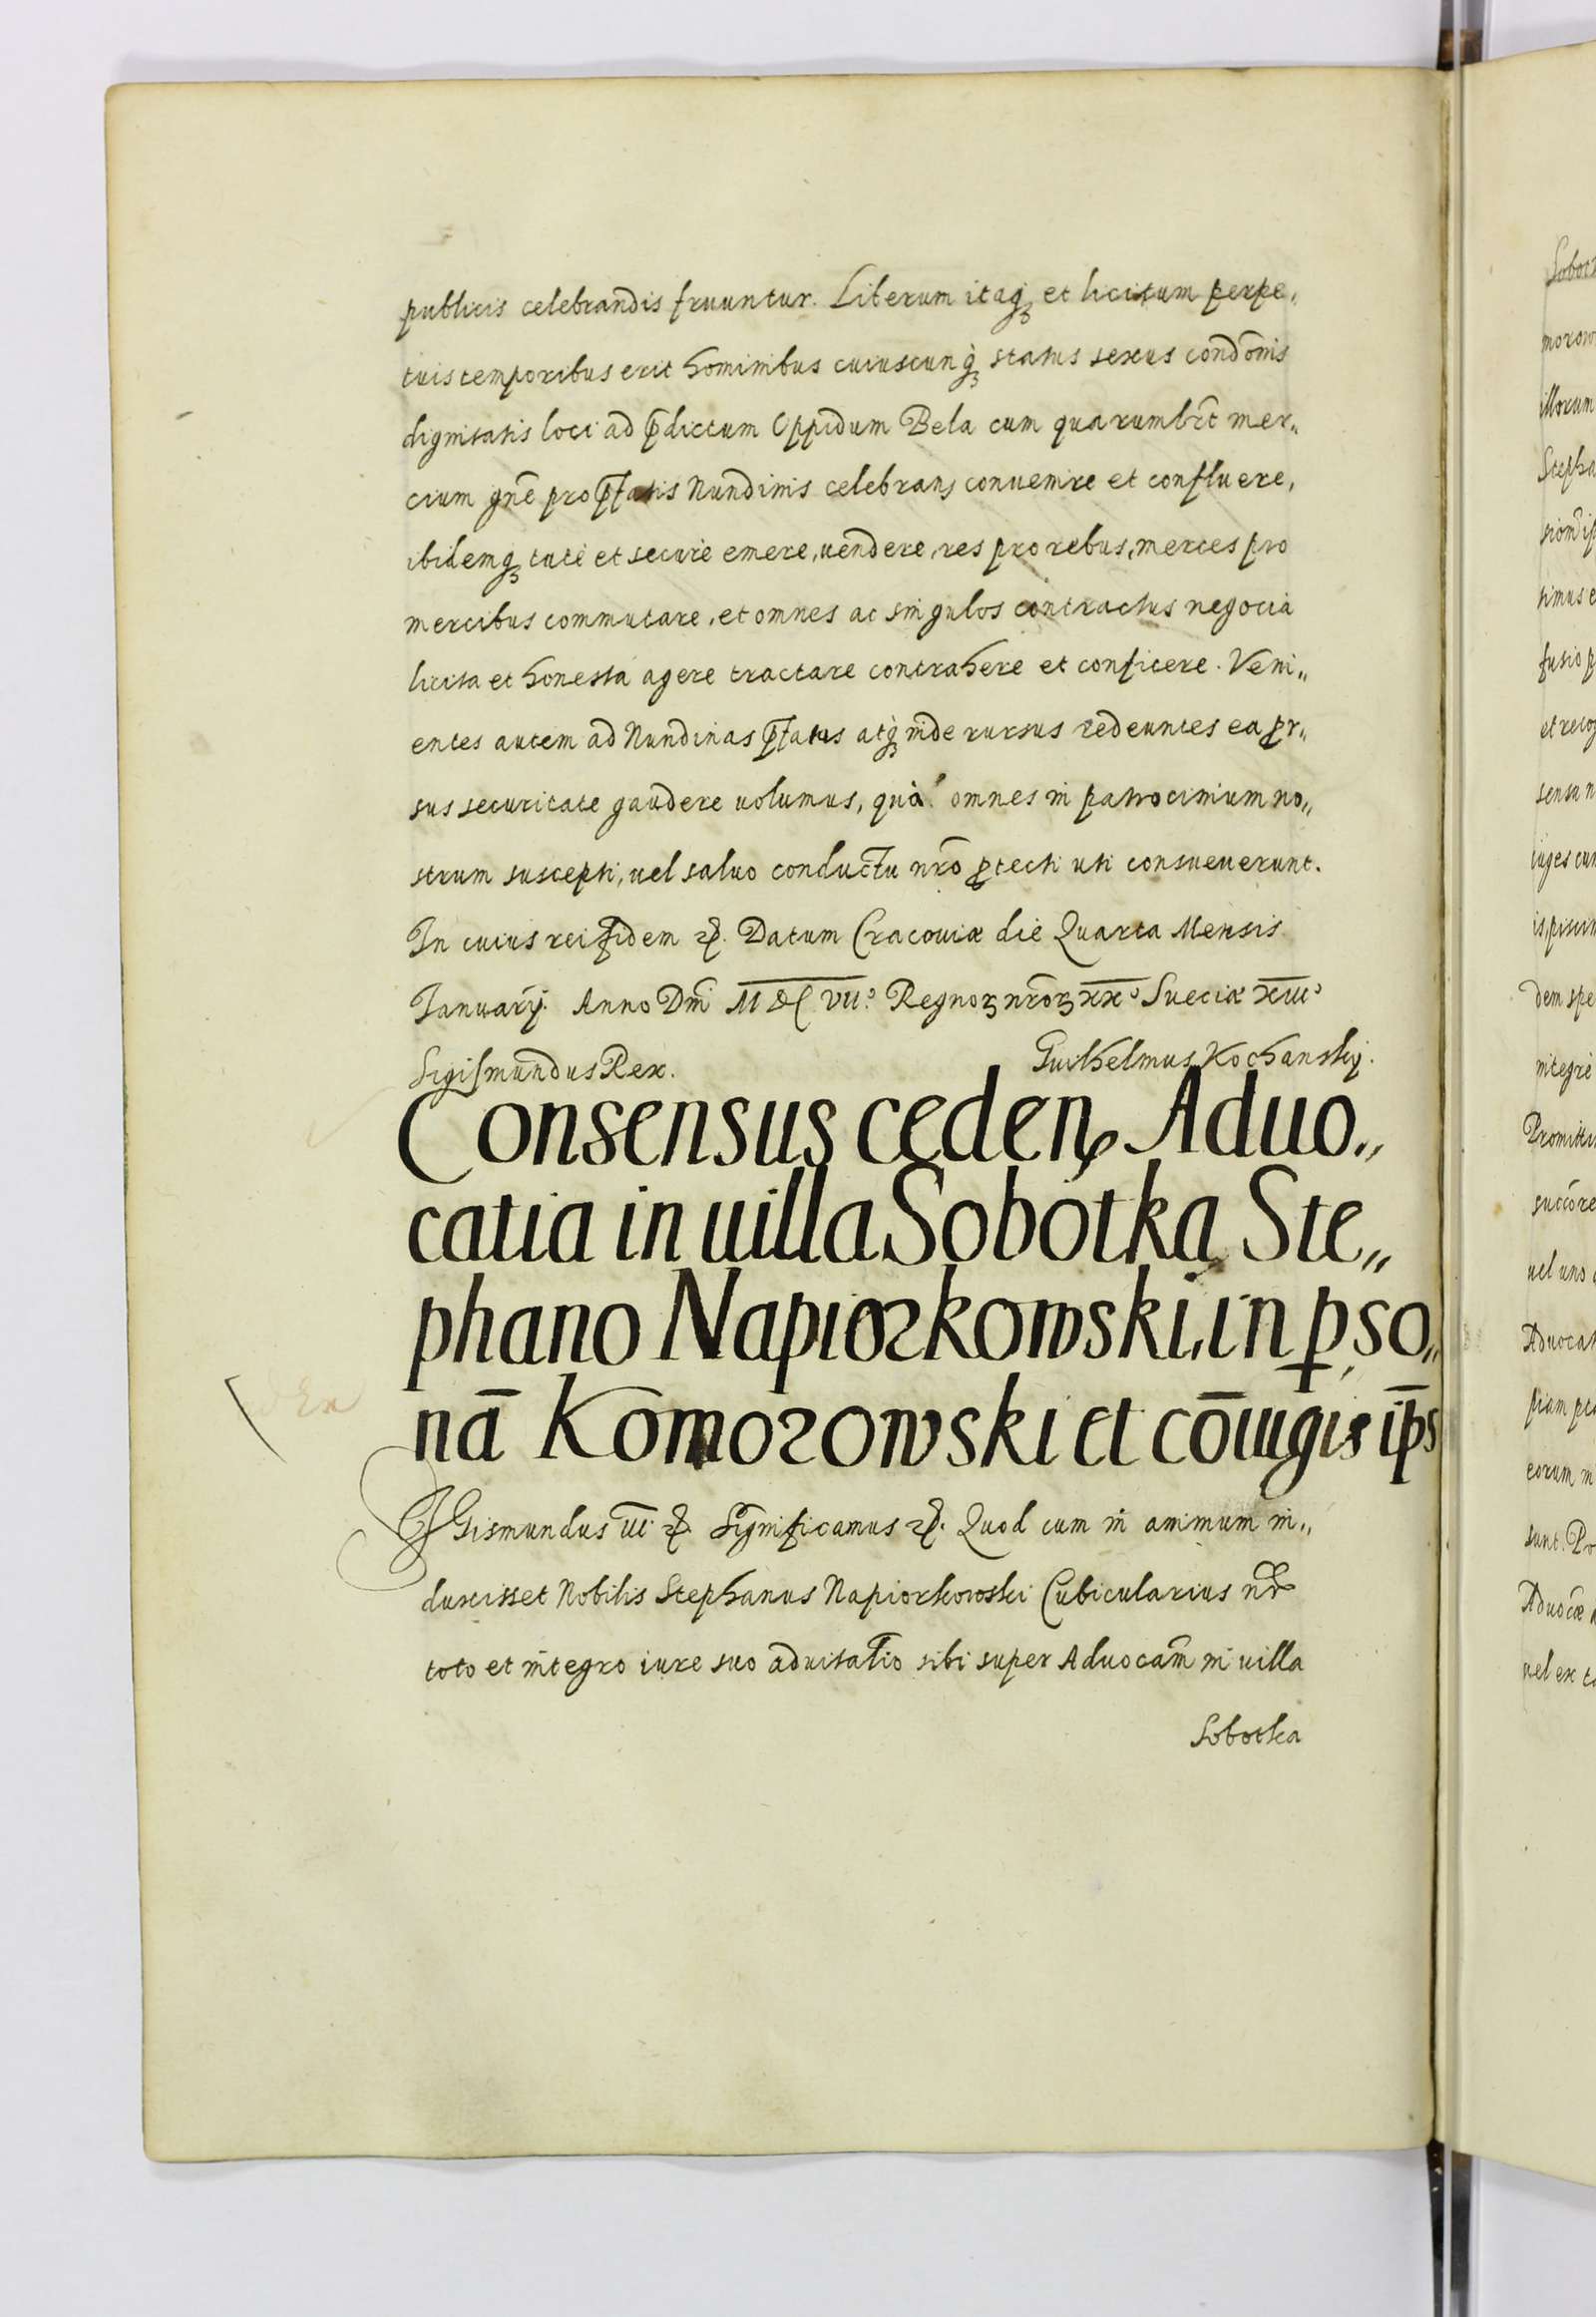 publicis celebrandis fruuntur. Liberum itaqꝫ et licitum perpe„
tuis temporibus erit hominibus cuiuscunqꝫ status sexus condõnis
dignitatis loci ad p̃dictum Oppidum Bela cum quarumlr̃t mer„
cium gñe pro p̃fatis Nundinis celebranꝫ convenire et confluere,
ibidemqꝫ tutè et securè emere, vendere, res pro rebus, merces pro
mercibus commutare, et omnes ac singulos contractus negocia
licita et honesta agere tractare contrahere et conficere. Veni„
entes autem ad Nundinas p̃fatas atqꝫ inde rursus redeuntes ea ꝓr„
sus securitate gaudere uolumus, quà omnes in patrocinium no„
strum suscepti, uel saluo conductu nr̃o ꝓtecti uti consueuerunt.
In cuius rei fidem ꝛc̃. Datum Cracouiæ die Quarta Mensis
Januarij. Anno Dñi M DC VII.º Regnoꝝ nr̃oꝝ XXº Sueciæ XIIIº
Sigismundus Rex. Guilhelmus Kochanskj.
Consensus cedenꝭ Aduo„
catia in uilla Sobotka Ste„
phano Napiorkowski, in ꝑso„
nã Komorowski et cõiugis ip̃s
SJGismundus III ꝛc̃. Significamus ꝛc̃. Quod cum in animum in„
duxisset Nobilis Stephanus Napiorkowski Cubicularius nr̃
toto et integro iure suo aduitalio sibi super Aduocam̃ in uilla
Sobotka